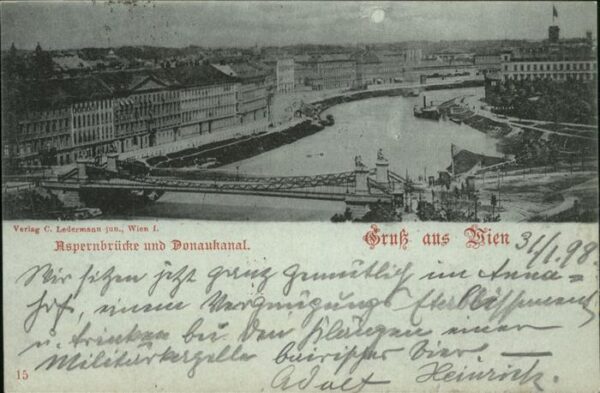 Verlag C. Ledermann jun., Wien I.
Aspernbrücke und Donaukanal.
Gruß aus Wien
31/1.98.
Wir sitzen jetzt ganz gemütlich im Anna=
hof, einem Vergnügungs Etablissement
u. trinken bei den Klängen einer
Militärkapelle bairisches Bier —
Adolf Heinrich.
15